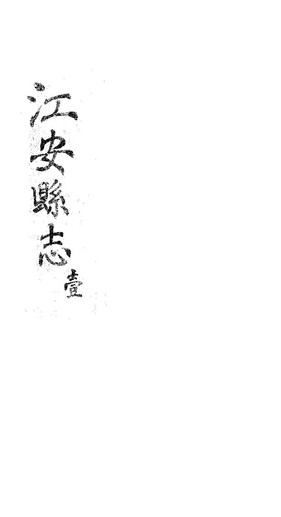 江安縣志
壹